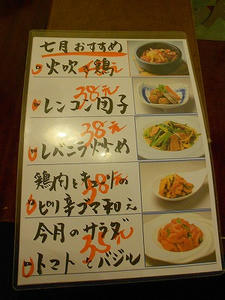 七月おすすめ
火吹き鶏
38元
レンコン団子
38元
レバニラ炒め
38元
鶏肉とキュウリの
ピリ辛ゴマ和え
今月のサラダ
35元
トマトとバジル